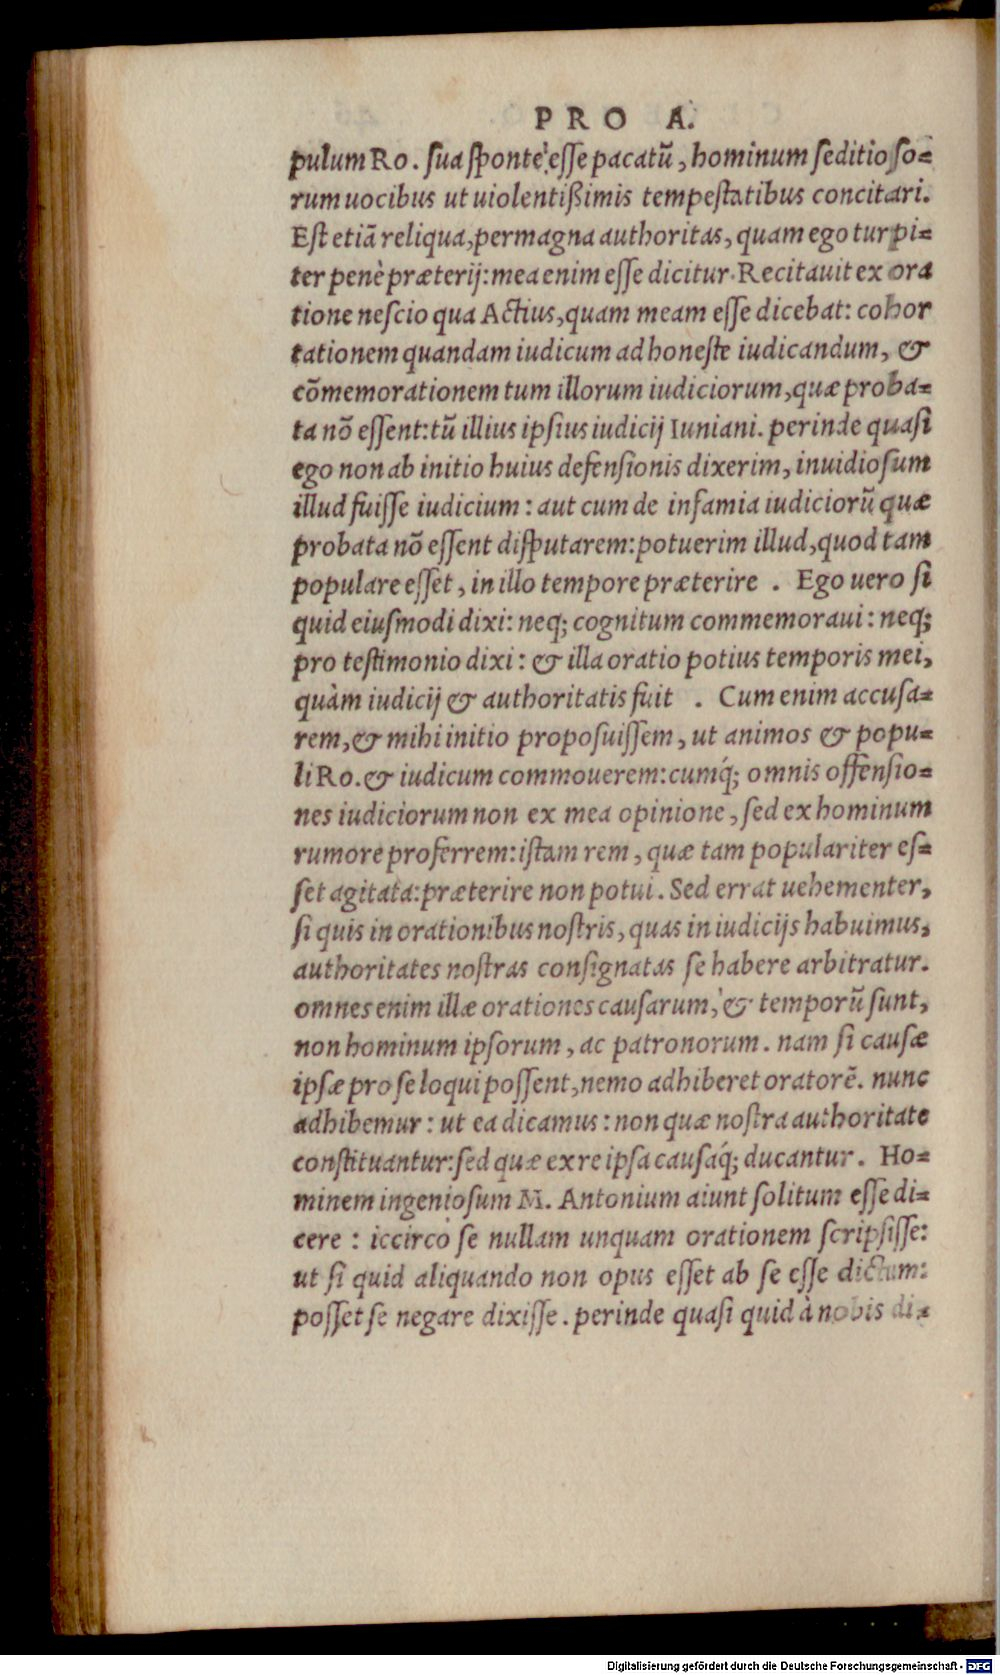 PRO A.
pulum Ro. sua sponte esse pacatũ, hominum seditioso=
rum uocibus ut uiolentißimis tempestatibus concitari.
Est etiã reliqua, permagna authoritas, quam ego turpi=
ter penè præterij: mea enim esse dicitur. Recitauit ex ora
tione nescio qua Actius, quam meam esse dicebat: cohor
tationem quandam iudicum ad honeste iudicandum, &
cõmemorationem tum illorum iudiciorum, quæ proba=
ta nõ essent: tũ illius ipsius iudicij Iuniani. perinde quasi
ego non ab initio huius defensionis dixerim, inuidiosum
illud fuisse iudicium: aut cum de infamia iudiciorũ quæ
probata nõ essent disputarem: potuerim illud, quod tam
populare esset, in illo tempore præterire . Ego uero si
quid eiusmodi dixi: neq; cognitum commemoraui: neq;
pro testimonio dixi: & illa oratio potius temporis mei,
quàm iudicij & authoritatis fuit . Cum enim accusa=
rem, & mihi initio proposuissem, ut animos & popu=
li Ro. & iudicum commouerem: cumq́; omnis offensio=
nes iudiciorum non ex mea opinione, sed ex hominum
rumore proferrem: istam rem, quæ tam populariter es=
set agitata: præterire non potui. Sed errat uehementer,
si quis in orationibus nostris, quas in iudicijs habuimus,
authoritates nostras consignatas se habere arbitratur.
omnes enim illæ orationes causarum, & temporũ sunt,
non hominum ipsorum, ac patronorum. nam si causæ
ipsæ pro se loqui possent, nemo adhiberet oratorẽ. nunc
adhibemur: ut ea dicamus: non quæ nostra authoritate
constituantur: sed quæ ex re ipsa causaq́; ducantur. Ho=
minem ingeniosum M. Antonium aiunt solitum esse di=
cere: iccirco se nullam unquam orationem scripsisse:
ut si quid aliquando non opus esset ab se esse dictum:
posset se negare dixisse. perinde quasi quid à nobis di=
Digitalisierung gefördert durch die Deutsche Forschungsgemeinschaft - DFG